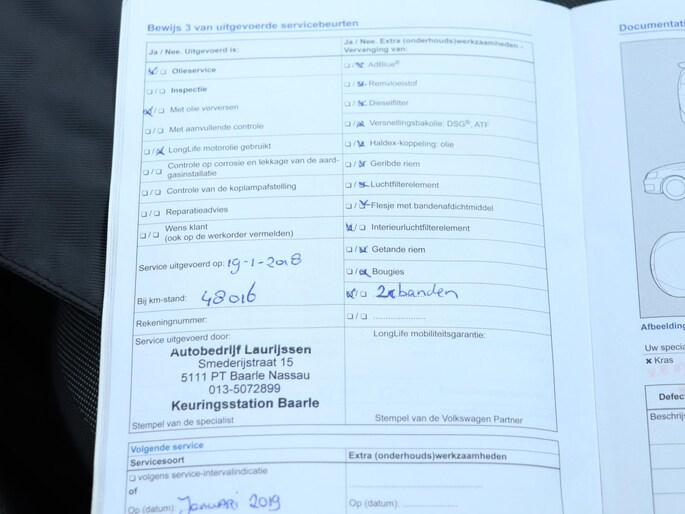 Bewijs 3 van uitgevoerde servicebeurten
Ja / Nee. Uitgevoerd is:
Olieservice
Inspectie
Met olie verversen
Met aanvullende controle
LongLife motorolie gebruikt
Controle op corrosie en lekkage van de aard-
gasinstallatie
Controle van de koplampafstelling
Reparatieadvies
Wens klant
(ook op de werkorder vermelden)
Service uitgevoerd op: 19-1-2018
Bij km-stand: 48016
Rekeningnummer:
Service uitgevoerd door:
Autobedrijf Laurijssen
Smederijstraat 15
5111 PT Baarle Nassau
013-5072899
Keuringsstation Baarle
Stempel van de specialist
Ja / Nee. Extra (onderhouds)werkzaamheden -
Vervanging van:
AdBlue®
Remvloeistof
Dieselfilter
Versnellingsbakolie: DSG®, ATF
Haldex-koppeling: olie
Geribde riem
Luchtfilterelement
Flesje met bandenafdichtmiddel
Interieurluchtfilterelement
Getande riem
Bougies
2x banden
LongLife mobiliteitsgarantie:
Stempel van de Volkswagen Partner
Volgende service
Servicesoort
volgens service-intervalindicatie
of
Op (datum): Januari 2019
Extra (onderhouds)werkzaamheden
Op (datum):
Documentati
Afbeelding
Uw specia
× Kras
Defec
Beschrij